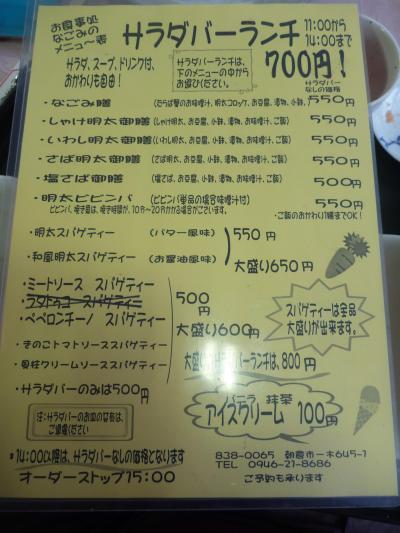 お食事処
なごみの
メニュ〜表
サラダバーランチ 11:00から
14:00まで
700円!
サラダ、スープ、ドリンク付、
おかわりも自由!
サラダバーランチは、
下のメニューの中から
お選びください。
サラダバー
なしの価格
・なごみ膳 (たらば蟹のお味噌汁、明太コロッケ、お豆腐、漬物、小鉢、ご飯) 550円
・しゃけ明太御膳 (しゃけ明太、お豆腐、小鉢、漬物、お味噌汁、ご飯) 550円
・いわし明太御膳 (いわし明太、お豆腐、小鉢、漬物、お味噌汁、ご飯) 550円
・さば明太御膳 (さば明太、お豆腐、小鉢、漬物、お味噌汁、ご飯) 550円
・塩さば御膳 (塩さば、お豆腐、小鉢、漬物、お味噌汁、ご飯) 500円
・明太ビビンバ (ビビンバ単品の場合味噌汁付) 550円
・ご飯のおかわり1膳までOK!
・明太スパゲティー (バター風味) 550円
・和風明太スパゲティー (お醤油風味) 大盛り650円
・ミートソース スパゲティー
・ラタトゥユ スパゲティー 500円
・ペペロンチーノ スパゲティー 大盛り600円
・きのこトマトソーススパゲティー
・貝柱クリームソーススパゲティー 大盛りサラダバーランチは、800円
スパゲティーは全品
大盛りが出来ます。
・サラダバーのみは500円
抹茶
アイスクリーム 100円
注:サラダバーのお皿の共有は、
ご遠慮ください
*14:00以降は、サラダバーなしの価格となります
オーダーストップ15:00
838-0065 朝倉市一木645-1
TEL 0946-21-8686
ご予約も承ります